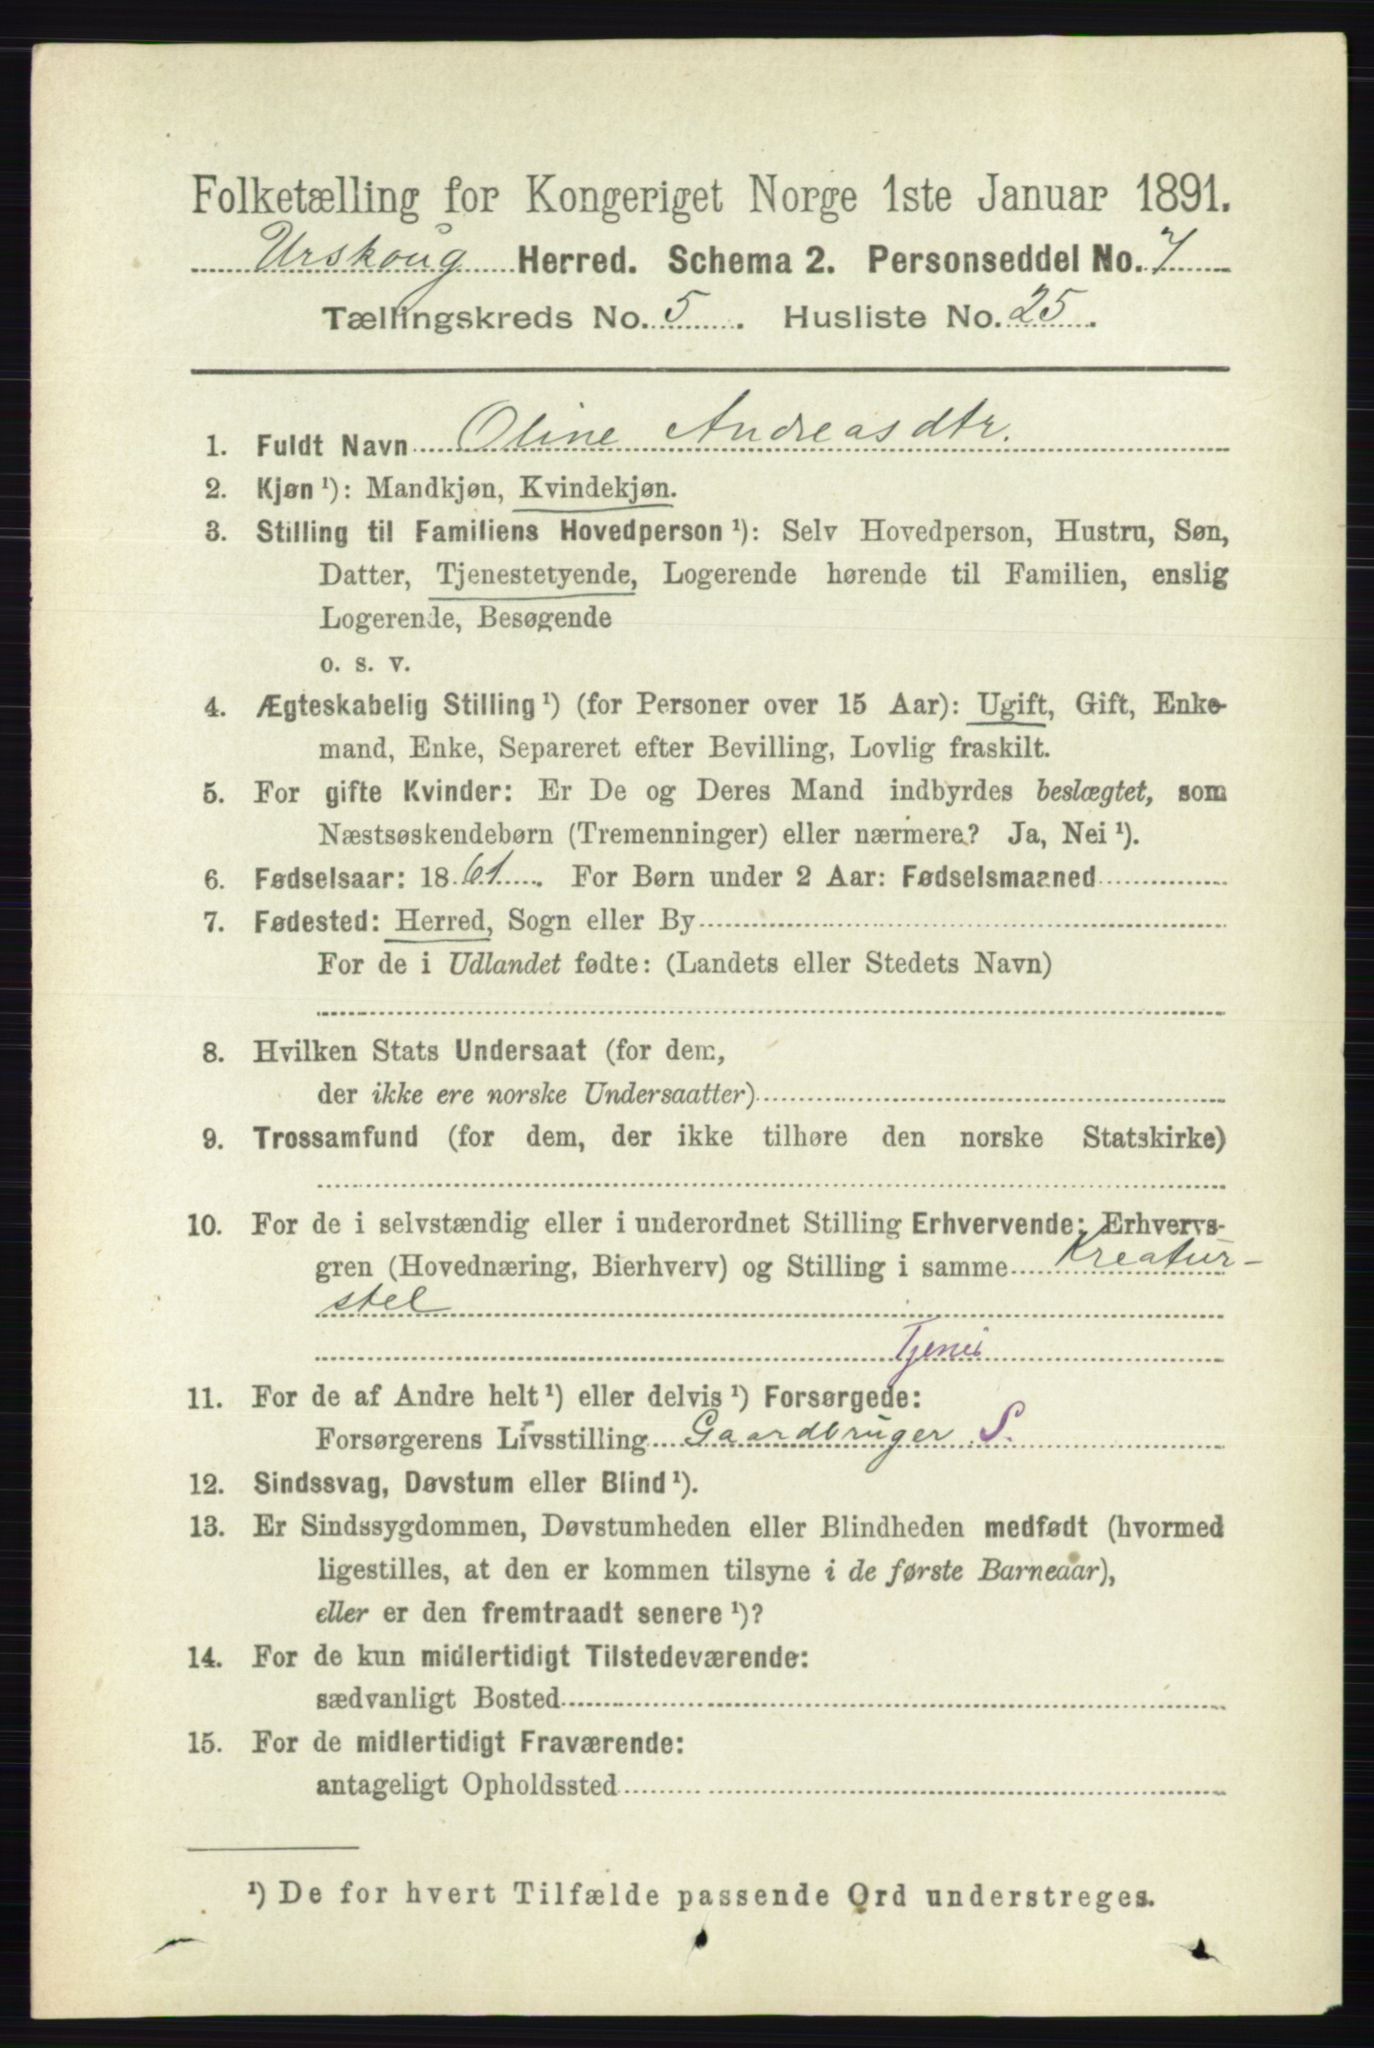 Folketælling for Kongeriget Norge 1ste Januar 1891.
Urskoug Herred. Schema 2. Personseddel No. 7
Tællingskreds No. 5. Husliste No. 25.
1. Fuldt Navn Oline Andreasdtr.
2. Kjøn ¹): Mandkjøn, Kvindekjøn.
3. Stilling til Familiens Hovedperson ¹): Selv Hovedperson, Hustru, Søn,
Datter, Tjenestetyende, Logerende hørende til Familien, enslig
Logerende, Besøgende
o. s. v.
4. Ægteskabelig Stilling ¹) (for Personer over 15 Aar): Ugift, Gift, Enke-
mand, Enke, Separeret efter Bevilling, Lovlig fraskilt.
5. For gifte Kvinder: Er De og Deres Mand indbyrdes beslægtet, som
Næstsøskendebørn (Tremenninger) eller nærmere? Ja, Nei ¹).
6. Fødselsaar: 1861. For Børn under 2 Aar: Fødselsmaaned
7. Fødested: Herred, Sogn eller By
For de i Udlandet fødte: (Landets eller Stedets Navn)
8. Hvilken Stats Undersaat (for dem,
der ikke ere norske Undersaatter)
9. Trossamfund (for dem, der ikke tilhøre den norske Statskirke)
10. For de i selvstændig eller i underordnet Stilling Erhvervende: Erhvervs-
gren (Hovednæring, Bierhverv) og Stilling i samme Kreatur-
stel
Tjener
11. For de af Andre helt ¹) eller delvis ¹) Forsørgede:
Forsørgerens Livsstilling Gaardbruger S.
12. Sindssvag, Døvstum eller Blind ¹).
13. Er Sindssygdommen, Døvstumheden eller Blindheden medfødt (hvormed
ligestilles, at den er kommen tilsyne i de første Barneaar),
eller er den fremtraadt senere ¹)?
14. For de kun midlertidigt Tilstedeværende:
sædvanligt Bosted
15. For de midlertidigt Fraværende:
antageligt Opholdssted
¹) De for hvert Tilfælde passende Ord understreges.